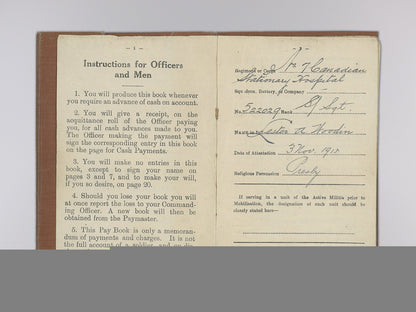 — 1 —
Instructions for Officers
and Men
1. You will produce this book whenever
you require an advance of cash on account.
2. You will give a receipt, on the
acquittance roll of the Officer paying
you, for all cash advances made to you.
The Officer making the payment will
sign the corresponding entry in this book
on the page for Cash Payments.
3. You will make no entries in this
book, except to sign your name on
pages 3 and 7, and to make your will,
if you so desire, on page 20.
4. Should you lose your book you will
at once report the loss to your Command-
ing Officer. A new book will then be
obtained from the Paymaster.
5. This Pay Book is only a memoran-
dum of payments and charges. It is not
the full account of a soldier, and no
Regiment or Corps No 7 Canadian
Stationary Hospital
Sqn. Battery, or Company
No. 522029 Rank S/Sgt.
Name
Date of Attestation 3 Nov. 1915
Religious Persuasion Presby
If serving in a unit of the Active Militia prior to
Mobilization, the designation of such unit should be
clearly stated here—